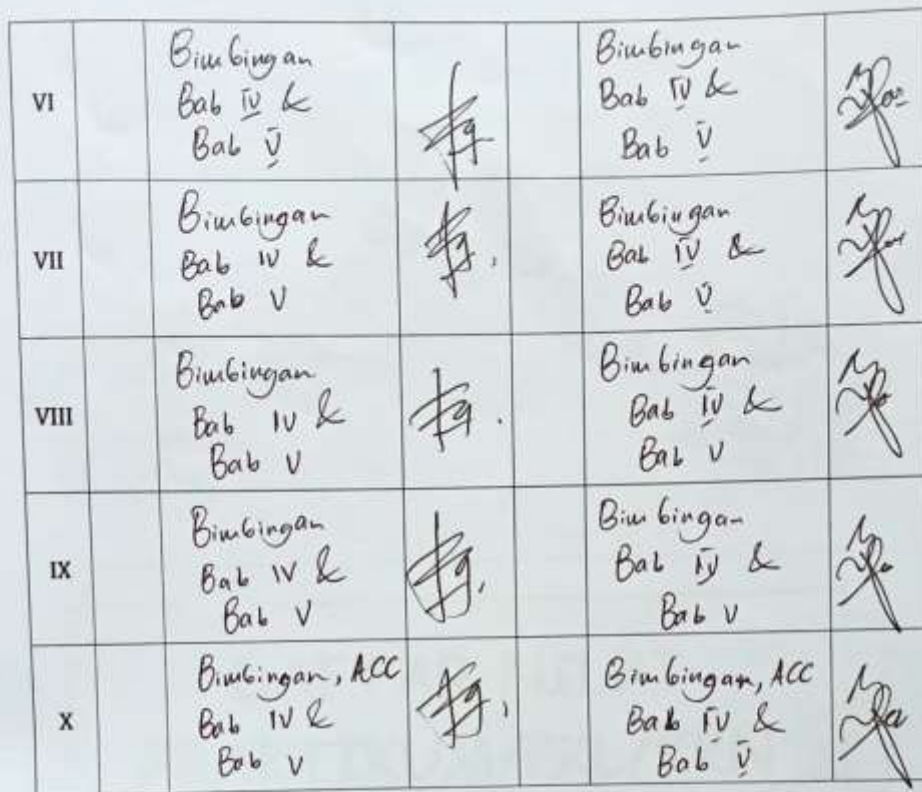 VI
Bimbingan
Bab IV &
Bab V
Bimbingan
Bab IV &
Bab V
VII
Bimbingan
Bab IV &
Bab V
Bimbingan
Bab IV &
Bab V
VIII
Bimbingan
Bab IV &
Bab V
Bimbingan
Bab IV &
Bab V
IX
Bimbingan
Bab IV &
Bab V
Bimbingan
Bab IV &
Bab V
X
Bimbingan, ACC
Bab IV &
Bab V
Bimbingan, ACC
Bab IV &
Bab V